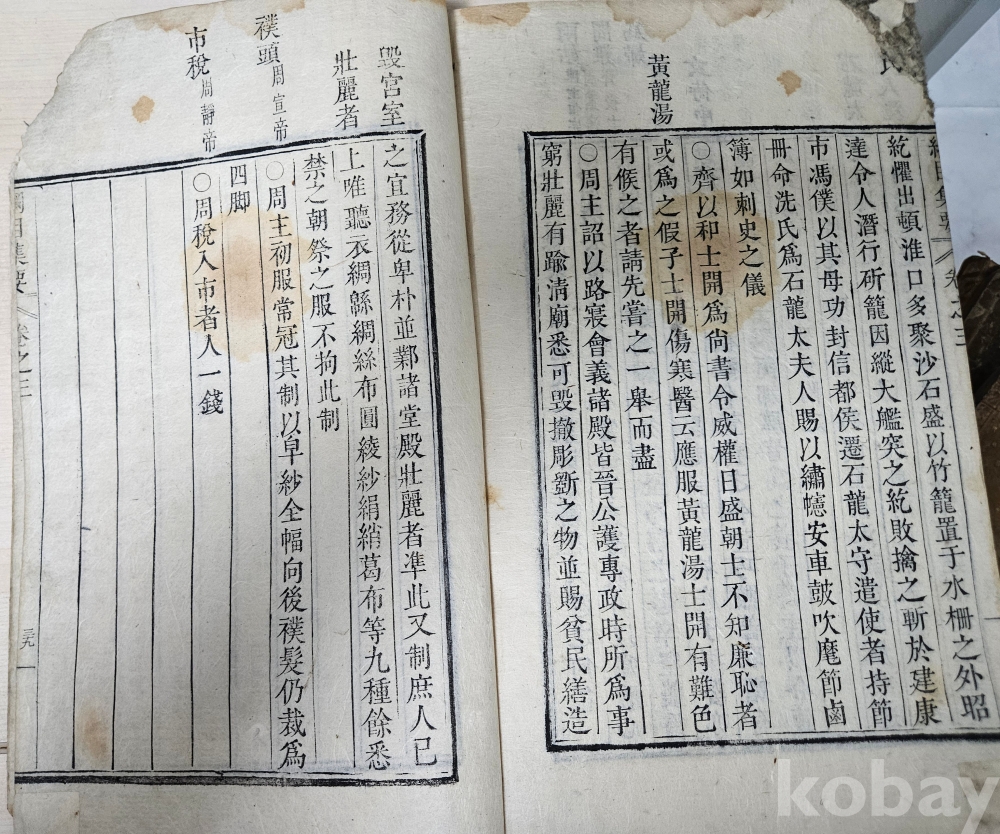 黃龍湯
綱目集要 卷之三
紇懼出頓淮口多聚沙石盛以竹籠置于水柵之外昭
達令人潛行斫籠因縱大艦突之紇敗擒之斬於建康
市馮僕以其母功封信都侯遷石龍太守遣使者持節
冊命洗氏爲石龍太夫人賜以繡幰安車鼓吹麾節鹵
簿如刺史之儀
○齊以和士開爲尚書令威權日盛朝士不知廉恥者
或爲之假子士開傷寒醫云應服黃龍湯士開有難色
有候之者請先嘗之一舉而盡
○周主詔以路寢會義諸殿皆晉公護專政時所爲事
窮壯麗有踰清廟悉可毀撤彫斲之物並賜貧民繕造
毀宮室
壯麗者
襆頭周宣帝
市稅周靜帝
之宜務從卑朴並鄴諸堂殿壯麗者準此又制庶人已
上唯聽衣綢緜綢絲布圓綾紗絹綃葛布等九種餘悉
禁之朝祭之服不拘此制
○周主初服常冠其制以皁紗全幅向後襆髮仍裁爲
四脚
○周稅入市者人一錢
綱目集要 卷之三
三九
kobay